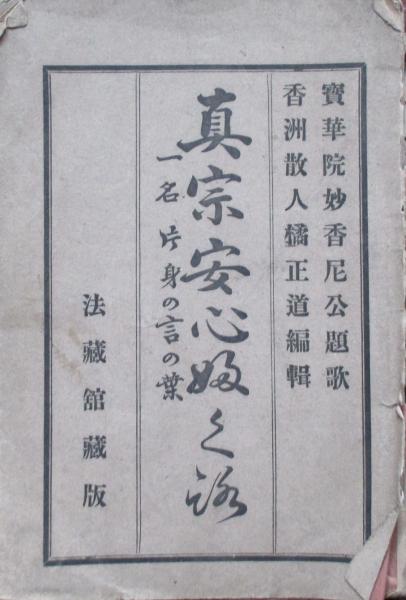 寶華院妙香尼公題歌
香洲散人橘正道編輯
真宗安心婦くろ
一名 片身の言の葉
法藏館藏版